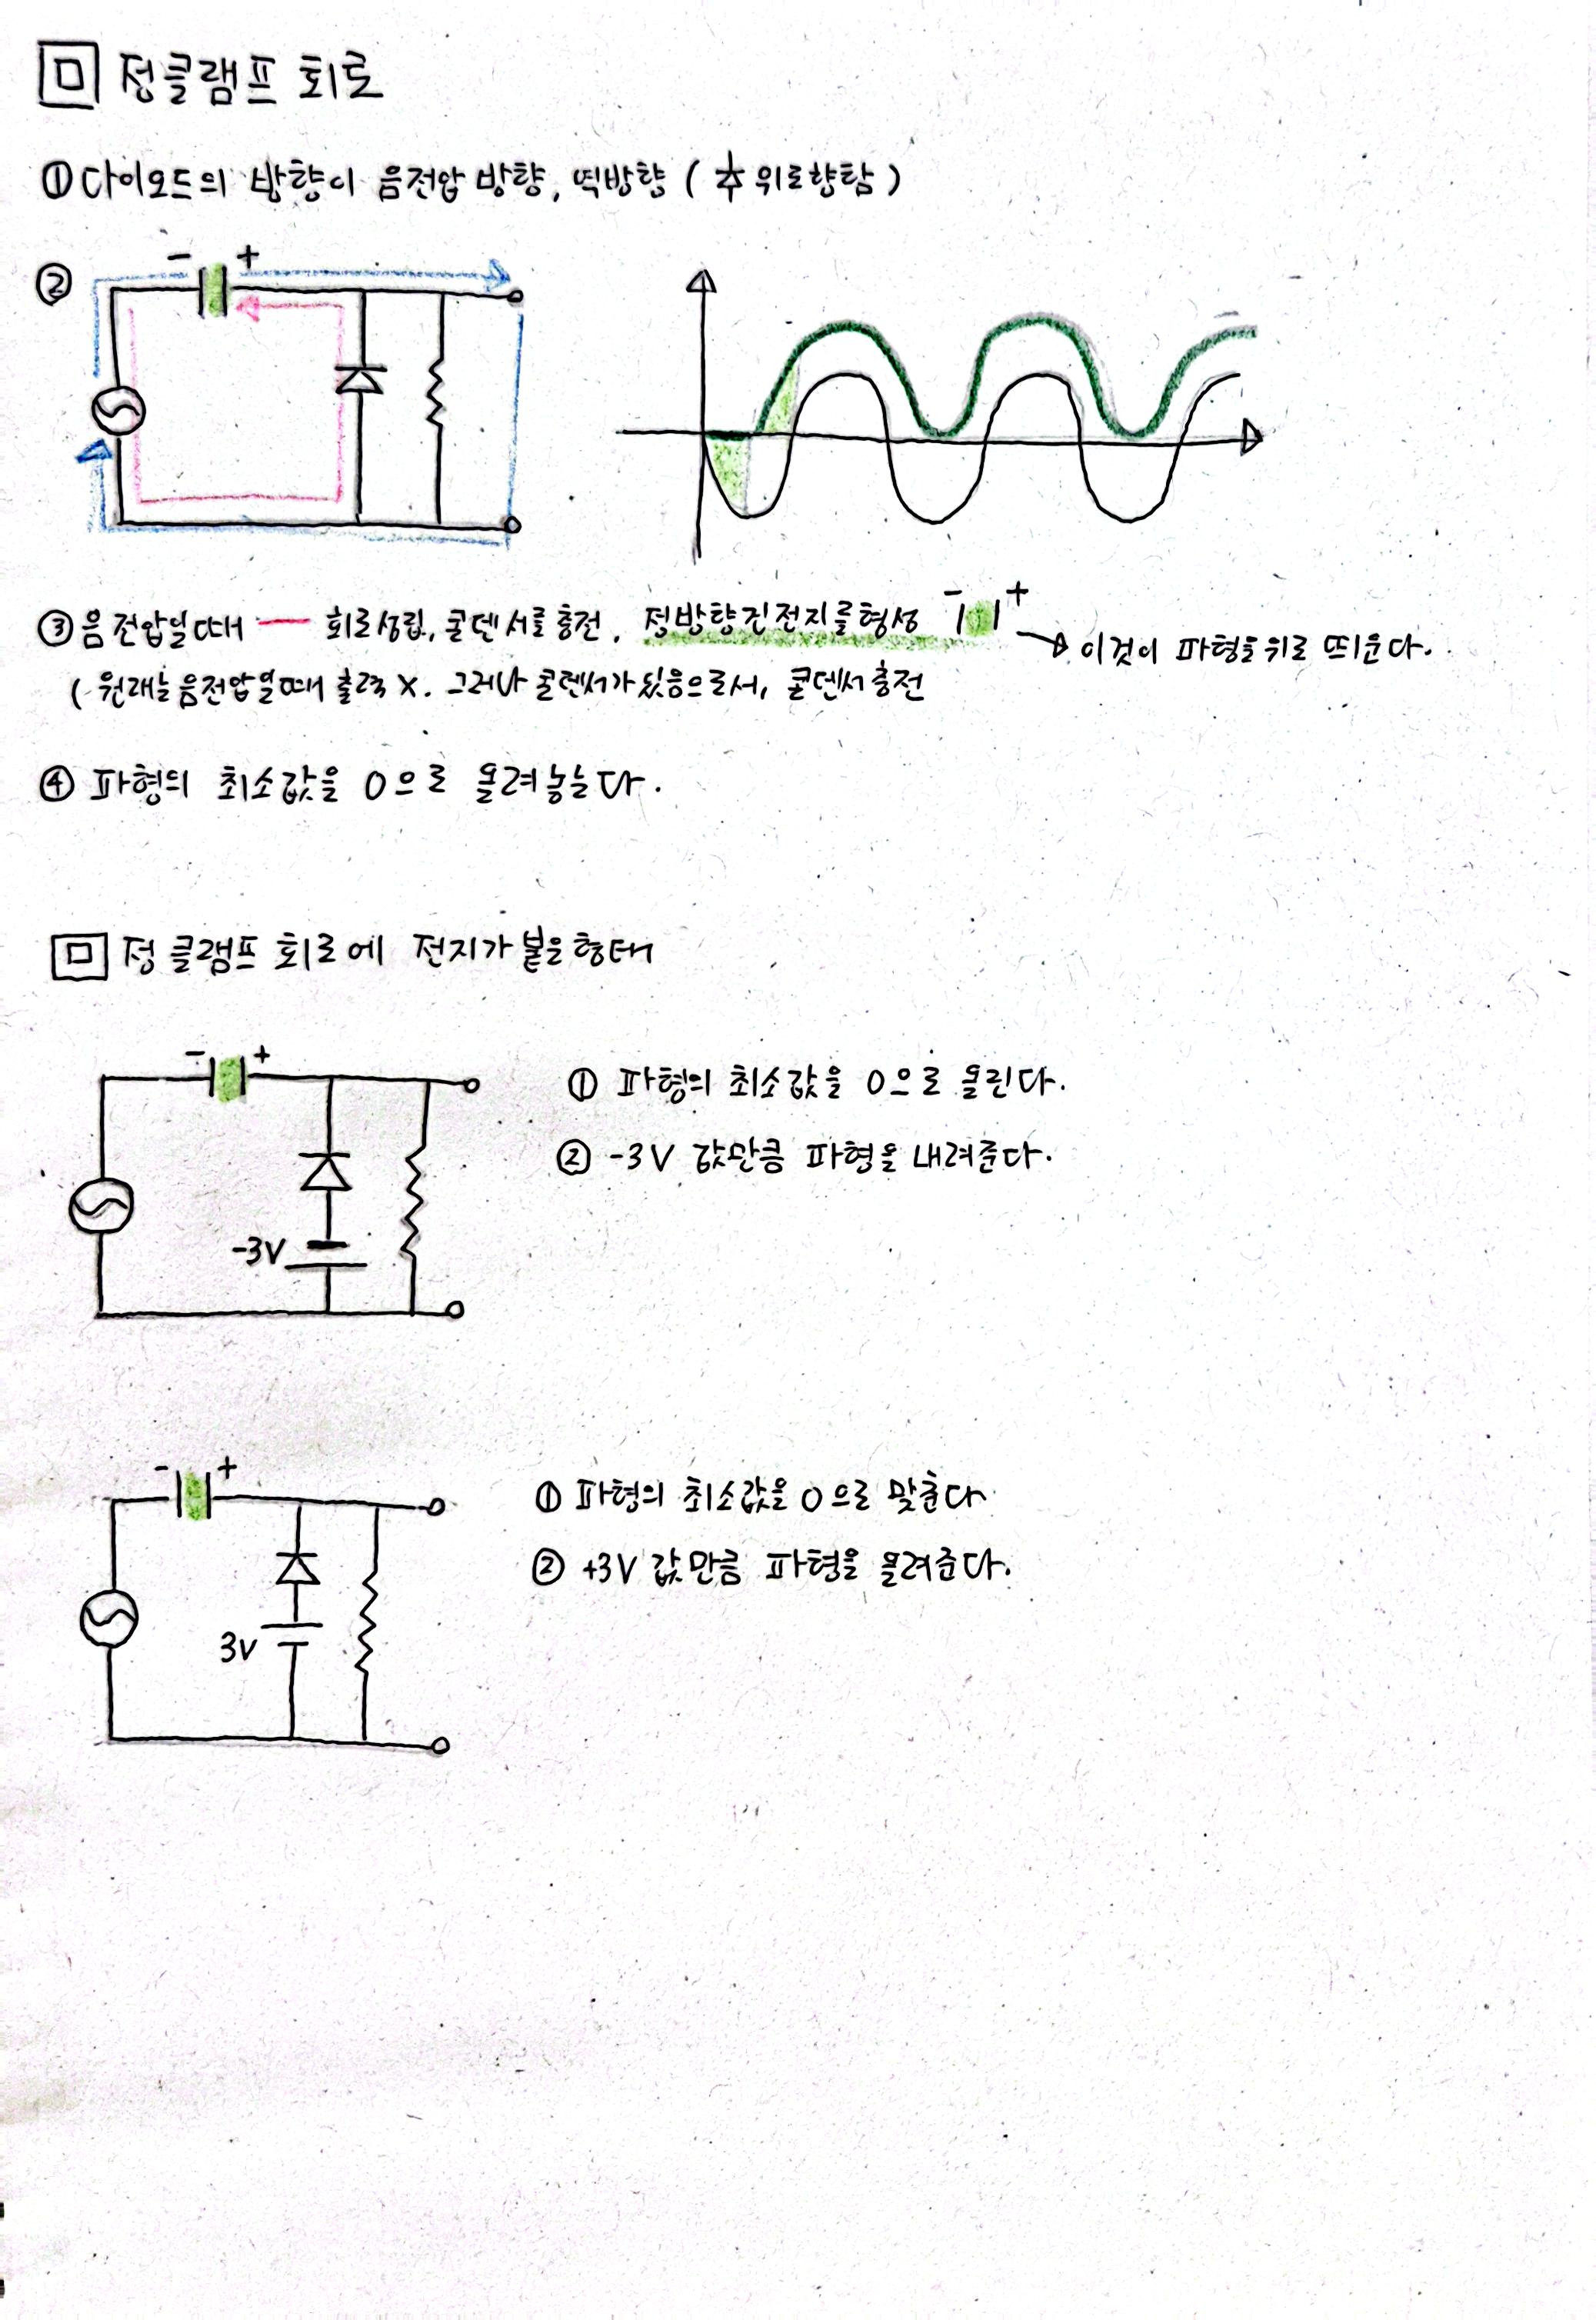 정클램프 회로
① 다이오드의 방향이 음전압 방향, 역방향 ( 위로향함 )
②
- +
③ 음전압일때 — 회로성립, 콘덴서를 충전, 정방향진전지를형성 - +
이것이 파형을 위로 띄운다.
( 원래는 음전압일때 출력 X. 그러나 콘덴서가 있음으로서, 콘덴서 충전
④ 파형의 최소값을 0으로 올려놓는다.
정 클램프 회로에 전지가 붙은형태
- +
① 파형의 최소값을 0으로 올린다.
② -3V 값만큼 파형을 내려준다.
-3V
- +
① 파형의 최소값을 0으로 맞춘다
② +3V 값만큼 파형을 올려준다.
3V